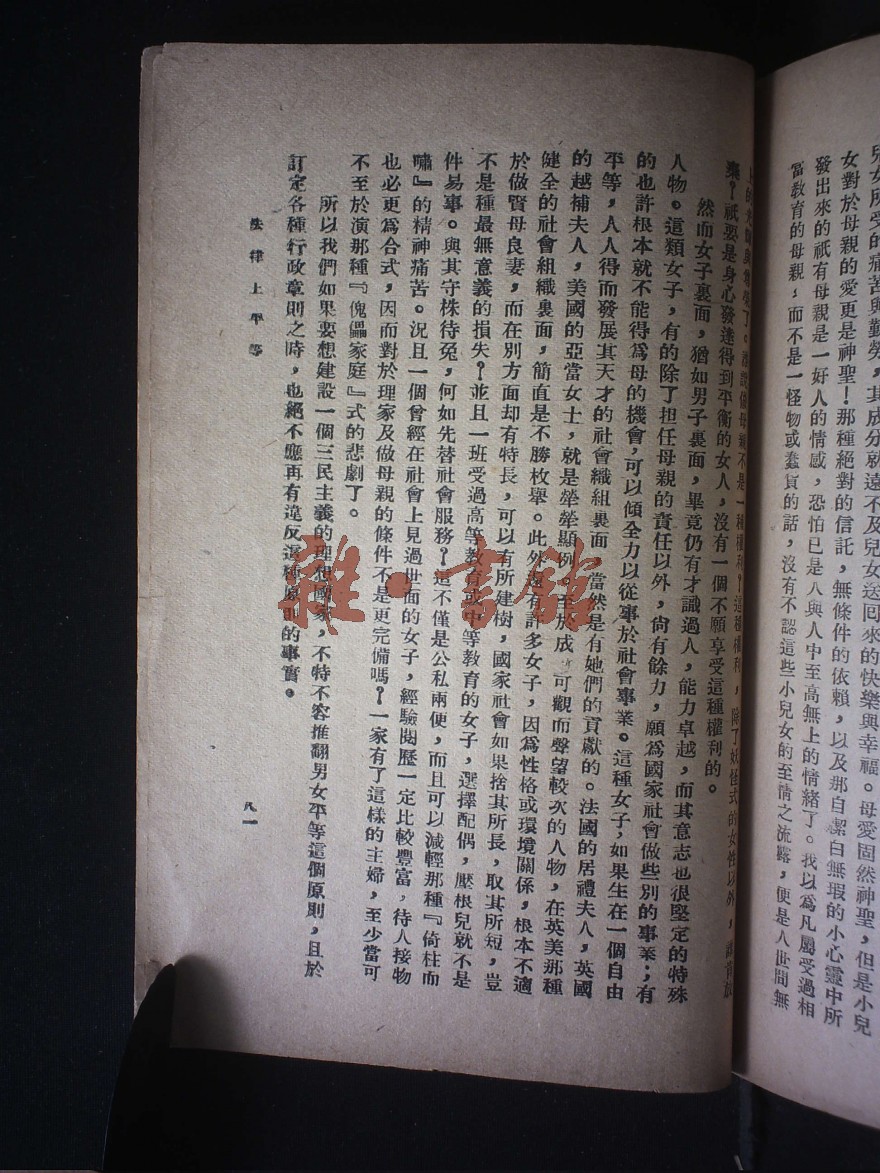 兒女所受的痛苦與勤勞，其成分就遠不及兒女送回來的快樂與幸福。母愛固然神聖，但是小兒
女對於母親的愛更是神聖！那種絕對的信託，無條件的依賴，以及那自潔白無瑕的小心靈中所
發出來的祇有母親是一好人的情感，恐怕已是人與人中至高無上的情緒了。我以為凡屬受過相
當教育的母親，而不是一怪物或蠢貨的話，沒有不認這些小兒女的至情之流露，便是人世間無
上的了。不是一種權利？這種權利，除了妖怪式的女性以外，
棄？祇要是身心發達得到平衡的女人，沒有一個不願享受這種權利的。
然而女子裏面，猶如男子裏面，畢竟仍有才識過人，能力卓越，而其意志也很堅定的特殊
人物。這類女子，有的除了担任母親的責任以外，尙有餘力，願爲國家社會做些別的事業；有
的也許根本就不能得爲母的機會，可以傾全力以從事於社會事業。這種女子，如果生在一個自由
平等，人人得而發展其天才的社會織組裏面，當然是有她們的貢獻的。法國的居禮夫人，英國
的越補夫人，美國的亞當女士，就是犖犖顯例。至於成可觀而聲望較次的人物，在英美那種
健全的社會組織裏面，簡直是不勝枚舉。此外還有許多女子，因爲性格或環境關係，根本不適
於做賢母良妻，而在別方面却有特長，可以有所建樹，國家社會如果捨其所長，取其所短，豈
不是種最無意義的損失？並且一班受過高等教育或中等教育的女子，選擇配偶，壓根兒就不是
件易事。與其守株待兔，何如先替社會服務？這不僅是公私兩便，而且可以減輕那種『倚柱而
嘯』的精神痛苦。況且一個曾經在社會上見過世面的女子，經驗閱歷一定比較豐富，待人接物
也必更爲合式，因而對於理家及做母親的條件不是更完備嗎？一家有了這樣的主婦，至少當可
不至於演那種『傀儡家庭』式的悲劇了。
所以我們如果要想建設一個三民主義的理想國家，不特不容推翻男女平等這個原則，且於
訂定各種行政章則之時，也絕不應再有違反這種原則的事實。
法律上平等
八一
雜·書館